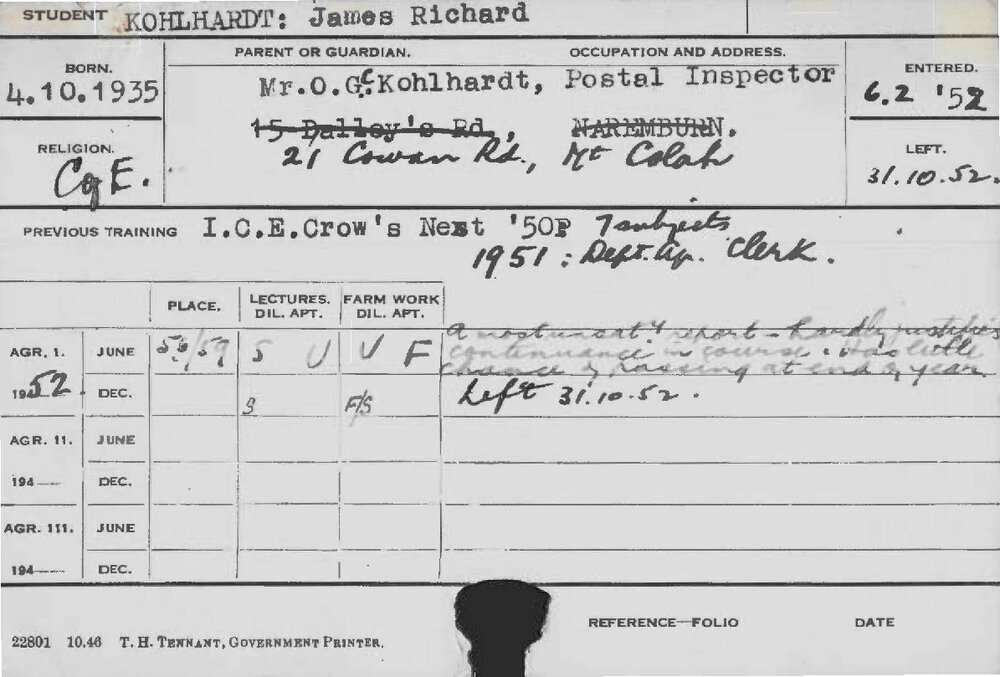 STUDENT KOHLHARDT: James Richard
PARENT OR GUARDIAN. OCCUPATION AND ADDRESS.
BORN.
4.10.1935
Mr.O.G.C.Kohlhardt, Postal Inspector
15 Dalley's Rd., NAREMBURN.
21 Cowan Rd., Mt Colah
ENTERED.
6.2 '52
RELIGION.
C of E.
LEFT.
31.10.52.
PREVIOUS TRAINING I.C.E.Crow's Nest '50P 7 subjects
1951 : Dept. Ag. Clerk.
PLACE. LECTURES. DIL. APT. FARM WORK DIL. APT.
AGR. 1. JUNE 56/59 S U U F
A most unsat. report - hardly justifies
continuance in course. Has little
chance of passing at end of year
1952 DEC. S F/S Left 31.10.52.
AGR. 11. JUNE
194 DEC.
AGR. 111. JUNE
194 DEC.
REFERENCE—FOLIO DATE
22801 10.46 T. H. TENNANT, GOVERNMENT PRINTER.